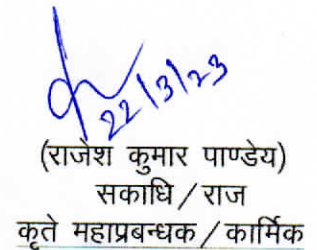 22/3/23
(राजेश कुमार पाण्डेय)
सकाधि/राज
कृते महाप्रबन्धक/कार्मिक